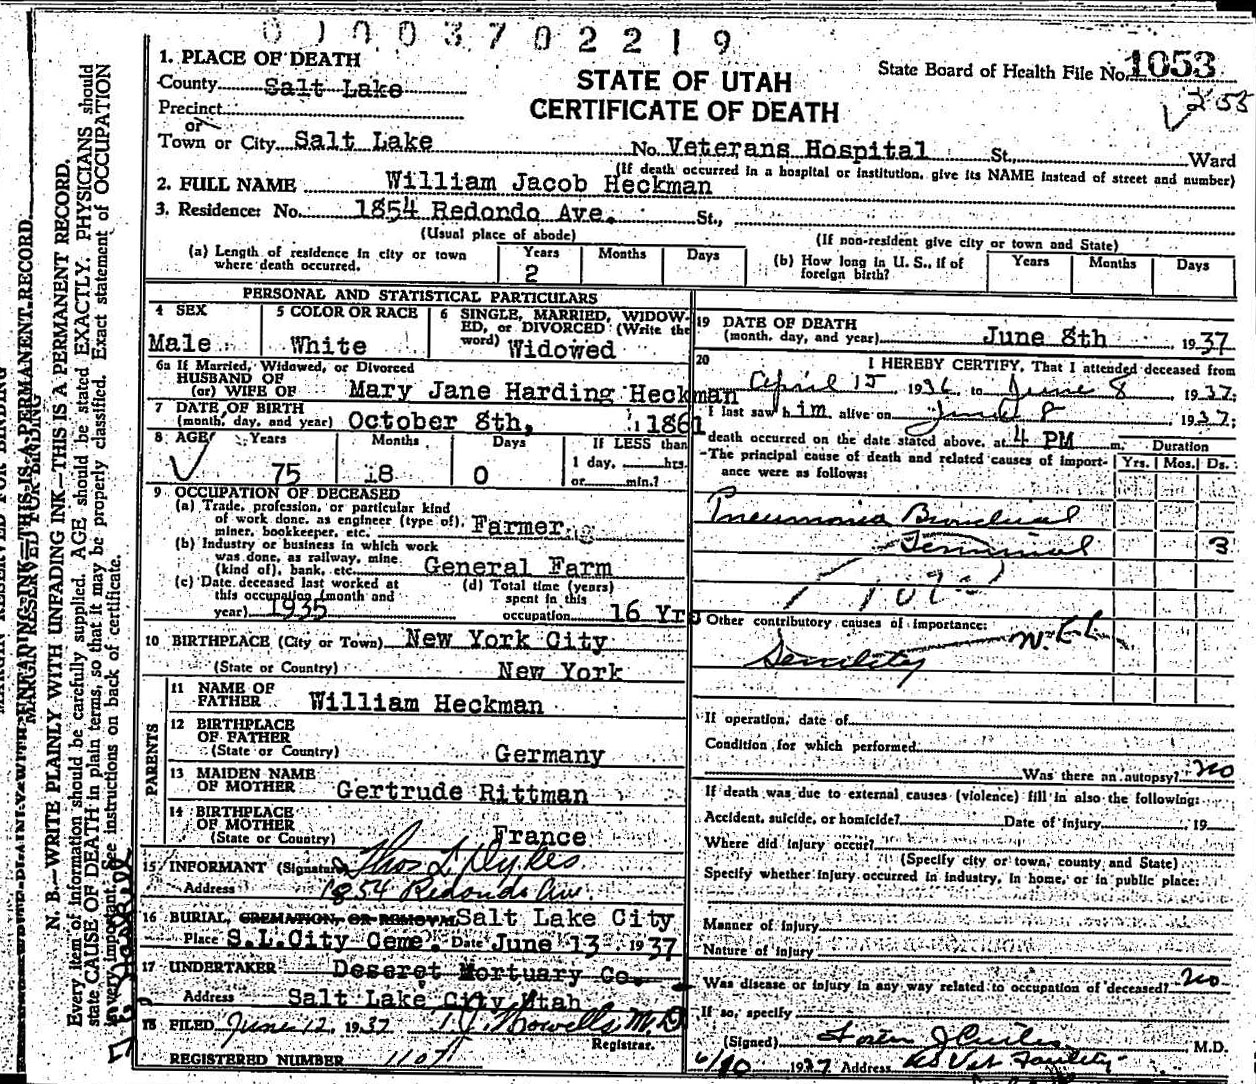 0 1 0 0 3 7 0 2 2 1 9
1. PLACE OF DEATH
County Salt Lake
Precinct
or
Town or City Salt Lake
STATE OF UTAH
CERTIFICATE OF DEATH
State Board of Health File No. 1053
253
No. Veterans Hospital St., Ward
(If death occurred in a hospital or institution, give its NAME instead of street and number)
2. FULL NAME William Jacob Heckman
3. Residence: No. 1854 Redondo Ave. St.,
(Usual place of abode)
(If non-resident give city or town and State)
(a) Length of residence in city or town where death occurred. Years 2 Months Days
(b) How long in U. S., if of foreign birth? Years Months Days
PERSONAL AND STATISTICAL PARTICULARS
4 SEX Male
5 COLOR OR RACE White
6 SINGLE, MARRIED, WIDOWED, or DIVORCED (Write the word) Widowed
6a If Married, Widowed, or Divorced
HUSBAND OF
(or) WIFE OF Mary Jane Harding Heckman
7 DATE OF BIRTH
(month, day, and year) October 8th, 1861
8 AGE Years 75 Months 8 Days 0
If LESS than
1 day, hrs.
or min.?
9 OCCUPATION OF DECEASED
(a) Trade, profession, or particular kind
of work done, as engineer (type of),
miner, bookkeeper, etc. Farmer
(b) Industry or business in which work
was done, as railway, mine
(kind of), bank, etc. General Farm
(c) Date deceased last worked at
this occupation (month and
year) 1935
(d) Total time (years)
spent in this
occupation 16 Yrs
10 BIRTHPLACE (City or Town) New York City
(State or Country) New York
PARENTS
11 NAME OF
FATHER William Heckman
12 BIRTHPLACE
OF FATHER
(State or Country) Germany
13 MAIDEN NAME
OF MOTHER Gertrude Rittman
14 BIRTHPLACE
OF MOTHER
(State or Country) France
15 INFORMANT (Signature) Thos L Dykes
Address 1854 Redondo Ave.
16 BURIAL, CREMATION, OR REMOVAL Salt Lake City
Place S.L.City Ceme. Date June 13 1937
17 UNDERTAKER Deseret Mortuary Co.
Address Salt Lake City Utah
18 FILED June 12, 1937 T.J. Howells M.D.
Registrar.
REGISTERED NUMBER 1107
19 DATE OF DEATH
(month, day, and year) June 8th 1937
20 I HEREBY CERTIFY, That I attended deceased from
April 15 1936 to June 8 1937;
I last saw him alive on June 8 1937;
death occurred on the date stated above, at 4 PM m.
Duration
Yrs. Mos. Ds.
The principal cause of death and related causes of importance were as follows:
Pneumonia Bronchial
Terminal 3
107
Other contributory causes of importance:
Senility
If operation, date of
Condition for which performed
Was there an autopsy? no
If death was due to external causes (violence) fill in also the following:
Accident, suicide, or homicide? Date of injury 19
Where did injury occur?
(Specify city or town, county and State)
Specify whether injury occurred in industry, in home, or in public place:
Manner of injury
Nature of injury
Was disease or injury in any way related to occupation of deceased? no
If so, specify
(Signed) M.D.
6/10 1937 Address US Vet Facility
MARGIN RESERVED FOR BINDING
N. B.—WRITE PLAINLY WITH UNFADING INK—THIS IS A PERMANENT RECORD.
Every item of information should be carefully supplied. AGE should be stated EXACTLY. PHYSICIANS should
state CAUSE OF DEATH in plain terms, so that it may be properly classified. Exact statement of OCCUPATION
is very important. See instructions on back of certificate.